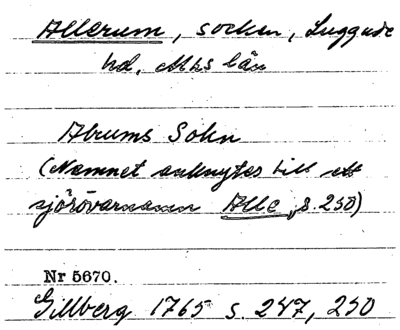 Allerum, socken, Luggude
hd, Mhs län
Alrums Sokn
(Namnet anknytes till ett
sjörövarnamn Alle, s. 250)
Nr 5670.
Gillberg 1765 s. 247, 250